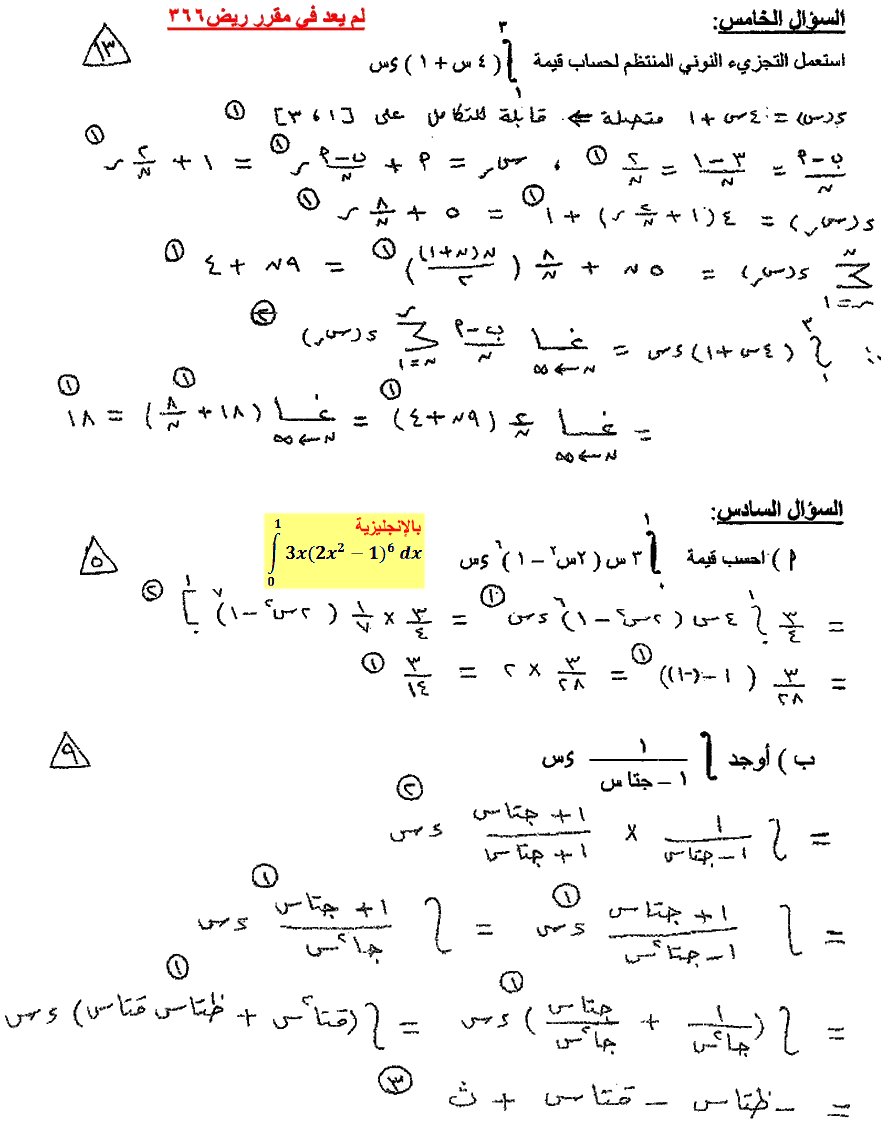 السؤال الخامس: لم يعد في مقرر ريض٣٦٦
١٣
استعمل التجزيء النوني المنتظم لحساب قيمة ∫₁³ (٤ س + ١) ءس
د(س) = ٤س + ١ متصلة ⇐ قابلة للتكامل على [١، ٣] ①
(ب-٩)/ن = (٣-١)/ن = ٢/ن ① ، سر = ٩ + (ب-٩)/ن ر ① = ١ + ٢/ن ر ①
د(سر) = ٤(١ + ٢/ن ر) + ١ ① = ٥ + ٨/ن ر ①
∑ (ر=١ ← ن) د(سر) = ٥ن + ٨/ن (ن(ن+١)/٢) ① = ٩ن + ٤ ①
∴ ∫₁³ (٤س + ١) ءس = نهــا (ن←∞) (ب-٩)/ن ∑ د(سر) ②
= نهــا (ن←∞) ٢/ن (٩ن + ٤) ① = نهــا (ن←∞) (١٨ + ٨/ن) ① = ١٨ ①
السؤال السادس:
بالإنجليزية
∫₀¹ 3x(2x² − 1)⁶ dx
٥
٩ ) احسب قيمة ∫₀¹ ٣ س (٢س² − ١)⁶ ءس
= ٣/٤ ∫₀¹ ٤س (٢س² − ١)⁶ ءس ① = ٣/٤ × ١/٧ (٢س² − ١)⁷ ]₀¹ ②
= ٣/٢٨ (١ − (−١)) ① = ٣/٢٨ × ٢ = ٣/١٤ ①
٩
ب ) أوجد ∫ ١/(١ − جتاس) ءس
= ∫ ١/(١ − جتاس) × (١ + جتاس)/(١ + جتاس) ءس ②
= ∫ (١ + جتاس)/(١ − جتا²س) ءس ① = ∫ (١ + جتاس)/(جا²س) ءس ①
= ∫ (١/جا²س + جتاس/جا²س) ءس ① = ∫ (قتا²س + ظتاس قتاس) ءس ①
= − ظتاس − قتاس + ث ③